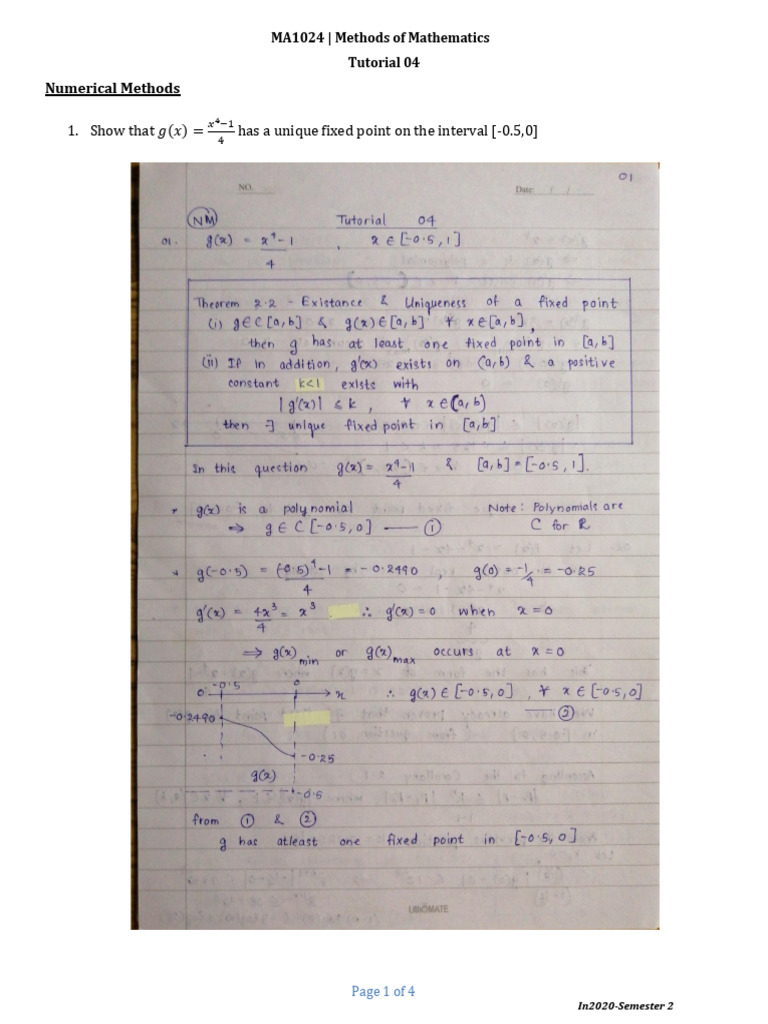 MA1024 | Methods of Mathematics
Tutorial 04
Numerical Methods
1. Show that g(x) = x⁴−1/4 has a unique fixed point on the interval [-0.5,0]
01
NO.
Date: / /
NM
Tutorial 04
01. g(x) = x⁴-1/4 , x ∈ [-0.5, 1]
Theorem 2.2 - Existance & Uniqueness of a fixed point
(i) g∈C[a,b] & g(x)∈[a,b] ∀ x∈[a,b],
then g has at least one fixed point in [a,b]
(ii) If in addition, g'(x) exists on (a,b) & a positive
constant k<1 exists with
|g'(x)| ≤ k, ∀ x∈(a,b)
then ∃ unique fixed point in [a,b]
In this question g(x) = x⁴-1/4 & [a,b] = [-0.5, 1].
* g(x) is a polynomial Note: Polynomials are
⇒ g ∈ C [-0.5, 0] — ① C for R
* g(-0.5) = (-0.5)⁴-1/4 = -0.2490 , g(0) = -1/4 = -0.25
g'(x) = 4x³/4 = x³ ∴ g'(x) = 0 when x = 0
⇒ g(x)min or g(x)max occurs at x = 0
0 -0.5 0 x ∴ g(x) ∈ [-0.5, 0] , ∀ x ∈ [-0.5, 0]
-0.2490 — ②
-0.25
g(x)
-0.5
from ① & ②
g has atleast one fixed point in [-0.5, 0]
UBIOMATE
Page 1 of 4
In2020-Semester 2